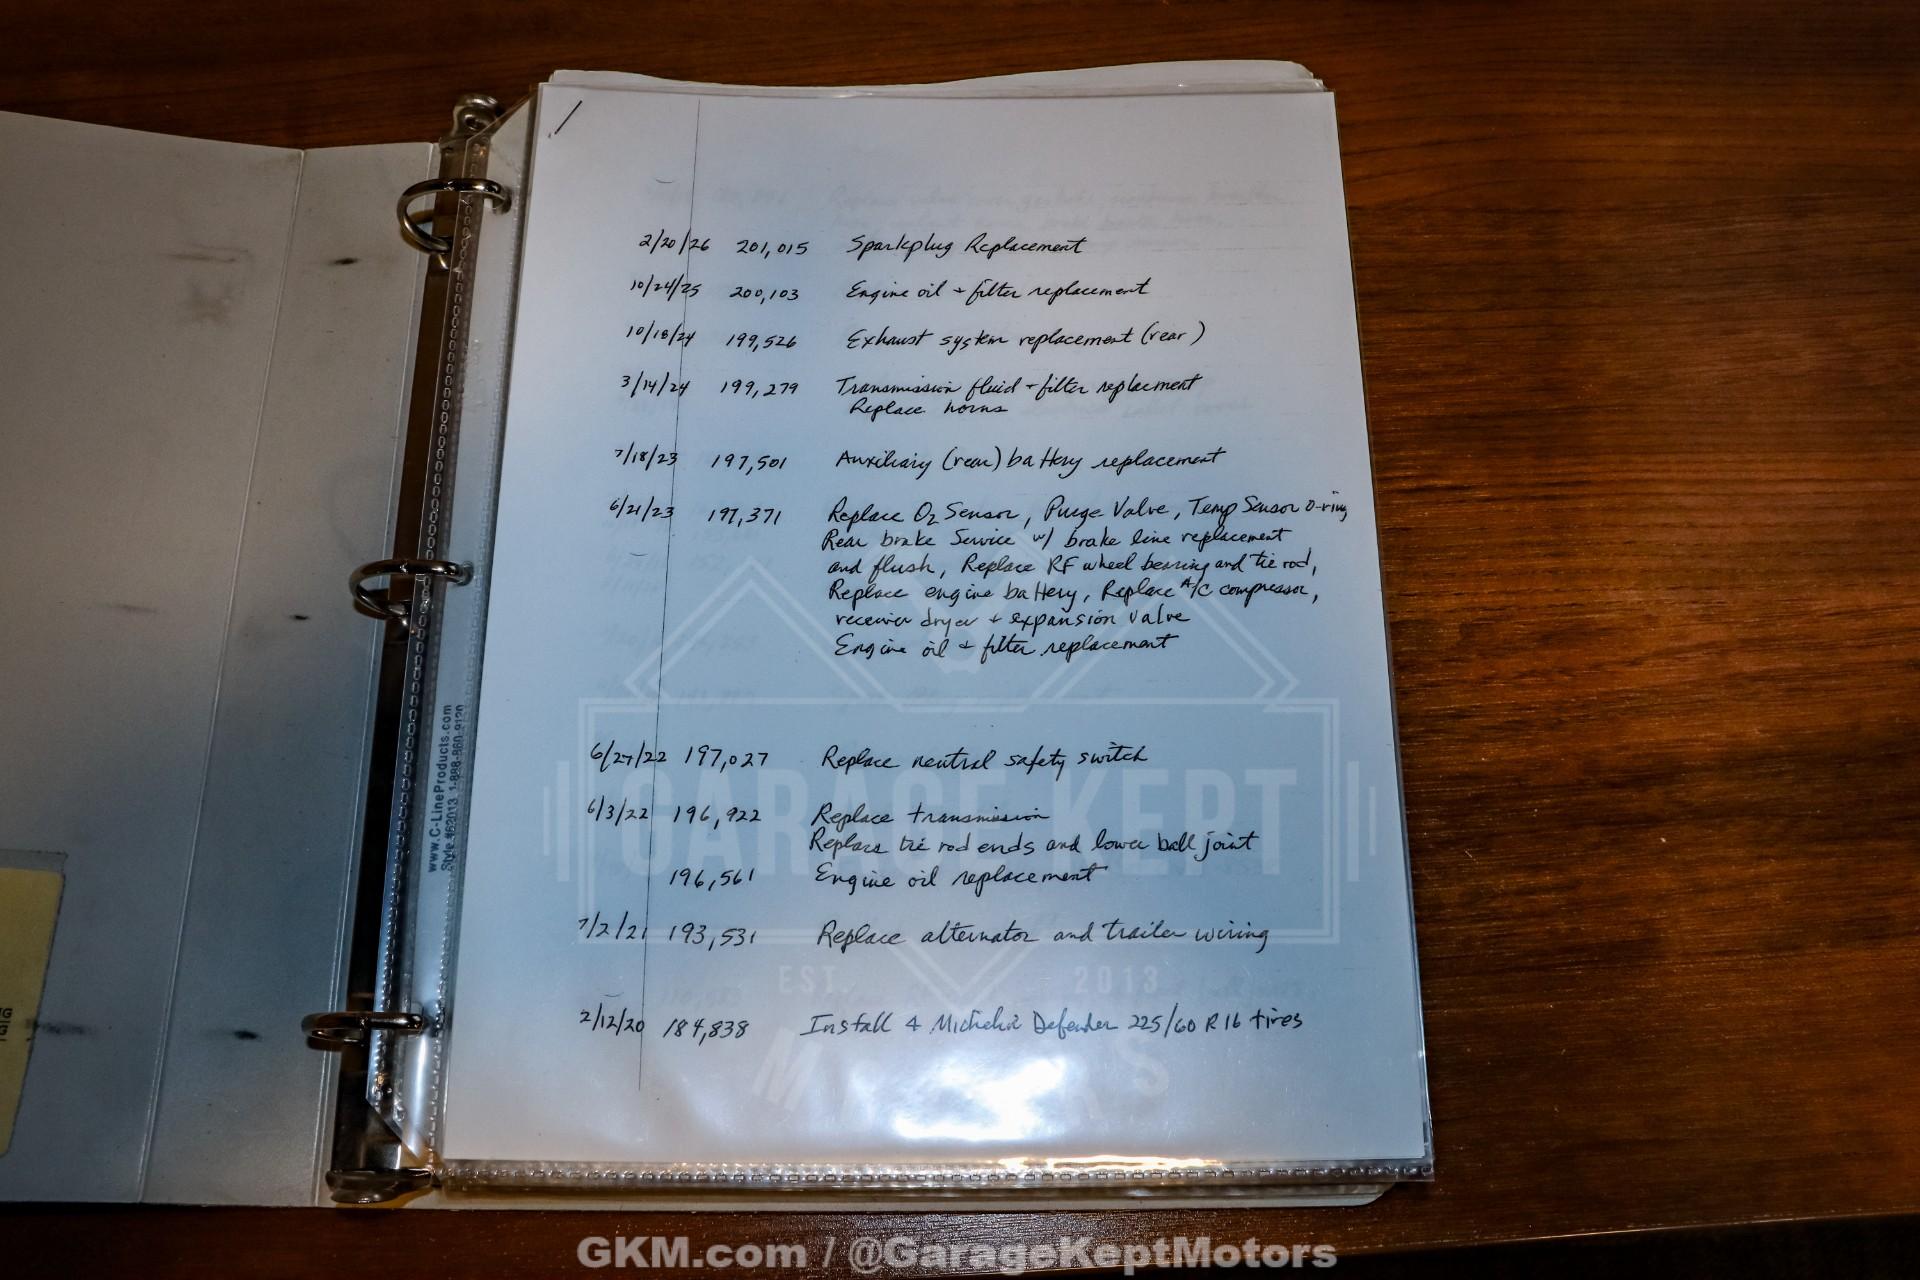 2/20/26 201,015 Sparkplug Replacement
10/24/25 200,103 Engine oil + filter replacement
10/18/24 199,526 Exhaust system replacement (rear)
3/14/24 199,279 Transmission fluid + filter replacment
Replace horns
7/18/23 197,501 Auxiliary (rear) battery replacement
6/21/23 197,371 Replace O2 Sensor, Purge Valve, Temp Sensor O-ring
Rear brake Service w/ brake line replacement
and flush, Replace RF wheel bearing and tie rod,
Replace engine battery, Replace A/C compressor,
receiver dryer + expansion valve
Engine oil + filter replacement
6/27/22 197,027 Replace neutral safety switch
6/3/22 196,922 Replace transmission
Replace tie rod ends and lower ball joint
196,561 Engine oil replacement
7/2/21 193,531 Replace alternator and trailer wiring
2/12/20 184,838 Install 4 Michelin Defender 225/60 R16 tires
www.C-LineProducts.com
Style #62013 1-888-860-9120
GARAGE KEPT
EST. 2013
MOTORS
GKM.com / @GarageKeptMotors